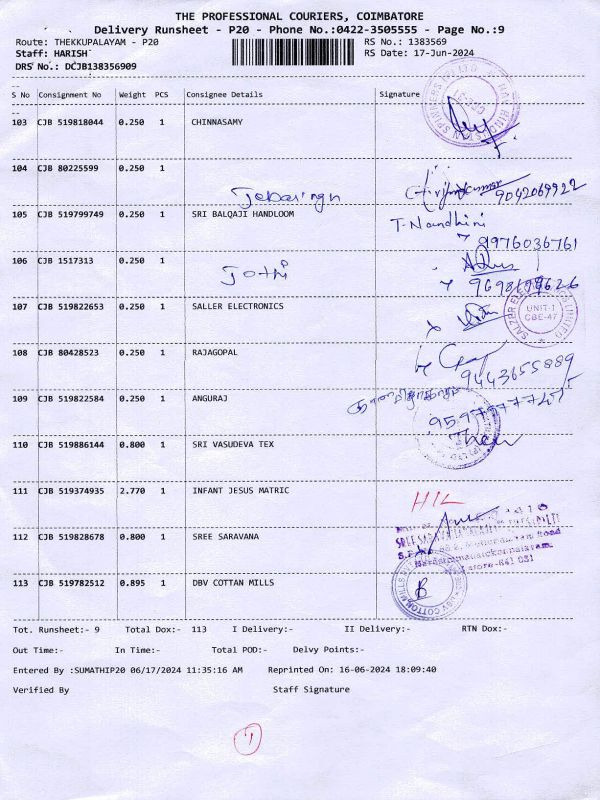 THE PROFESSIONAL COURIERS, COIMBATORE
Delivery Runsheet - P20 - Phone No.:0422-3505555 - Page No.:9
Route: THEKKUPALAYAM - P20 RS No.: 1383569
Staff: HARISH RS Date: 17-Jun-2024
DRS No.: DCJB138356909
S No Consignment No Weight PCS Consignee Details Signature
103 CJB 519818044 0.250 1 CHINNASAMY
104 CJB 80225599 0.250 1
Jebasingh 9042069922
105 CJB 519799749 0.250 1 SRI BALQAJI HANDLOOM T. Nandhini
9976036761
106 CJB 1517313 0.250 1
Jothi
107 CJB 519822653 0.250 1 SALLER ELECTRONICS UNIT-1
CBE-47
108 CJB 80428523 0.250 1 RAJAGOPAL
9443655889
109 CJB 519822584 0.250 1 ANGURAJ
110 CJB 519886144 0.800 1 SRI VASUDEVA TEX
111 CJB 519374935 2.770 1 INFANT JESUS MATRIC H/L
112 CJB 519828678 0.800 1 SREE SARAVANA
113 CJB 519782512 0.895 1 DBV COTTAN MILLS
Tot. Runsheet:- 9 Total Dox:- 113 I Delivery:- II Delivery:- RTN Dox:-
Out Time:- In Time:- Total POD:- Delvy Points:-
Entered By :SUMATHIP20 06/17/2024 11:35:16 AM Reprinted On: 16-06-2024 18:09:40
Verified By Staff Signature
1